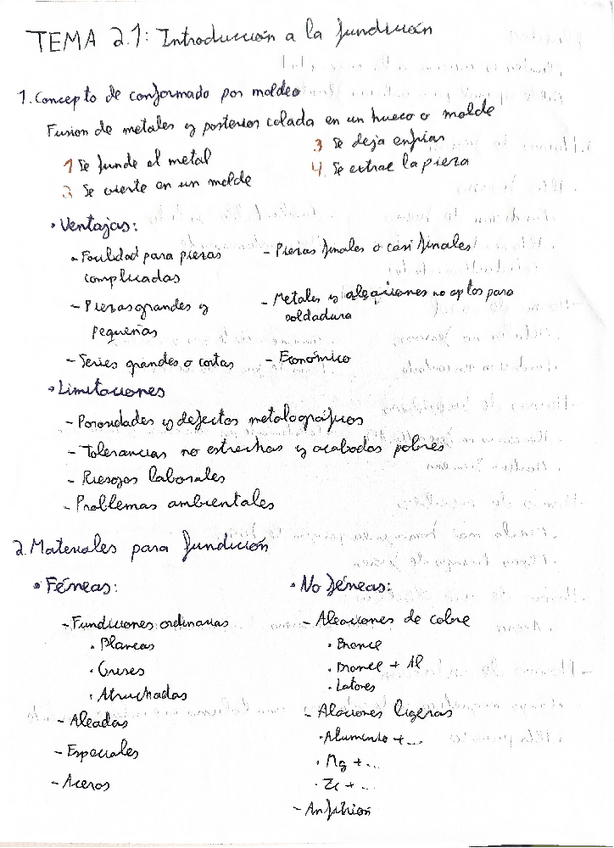 TEMA 2.1: Introducción a la fundición
1. Concepto de conformado por moldeo
Fusion de metales y posterior colada en un hueco o molde
1 Se funde el metal
3 Se vierte en un molde
3 Se deja enfriar
4. Se extrae la pieza
• Ventajas:
- Facilidad para piezas
complicadas
- Piezas grandes y
pequeñas
- Series grandes o cortas
- Piezas finales o casi finales
- Metales y aleaciones no aptos para
soldadura
- Económico
• Limitaciones
- Porosidades y defectos metalográficos
- Tolerancias no estrechas y acabados pobres
- Riesgos laborales
- Problemas ambientales
2. Materiales para fundición
• Férreas:
- Fundiciones ordinarias
• Blancas
• Grises
• Atruchadas
- Aleadas
- Especiales
- Aceros
• No férreas:
- Aleaciones de cobre
• Bronce
• Bronce + Al
• Latones
- Aleaciones ligeras
• Aluminio + ...
• Mg + ...
- Antifricción